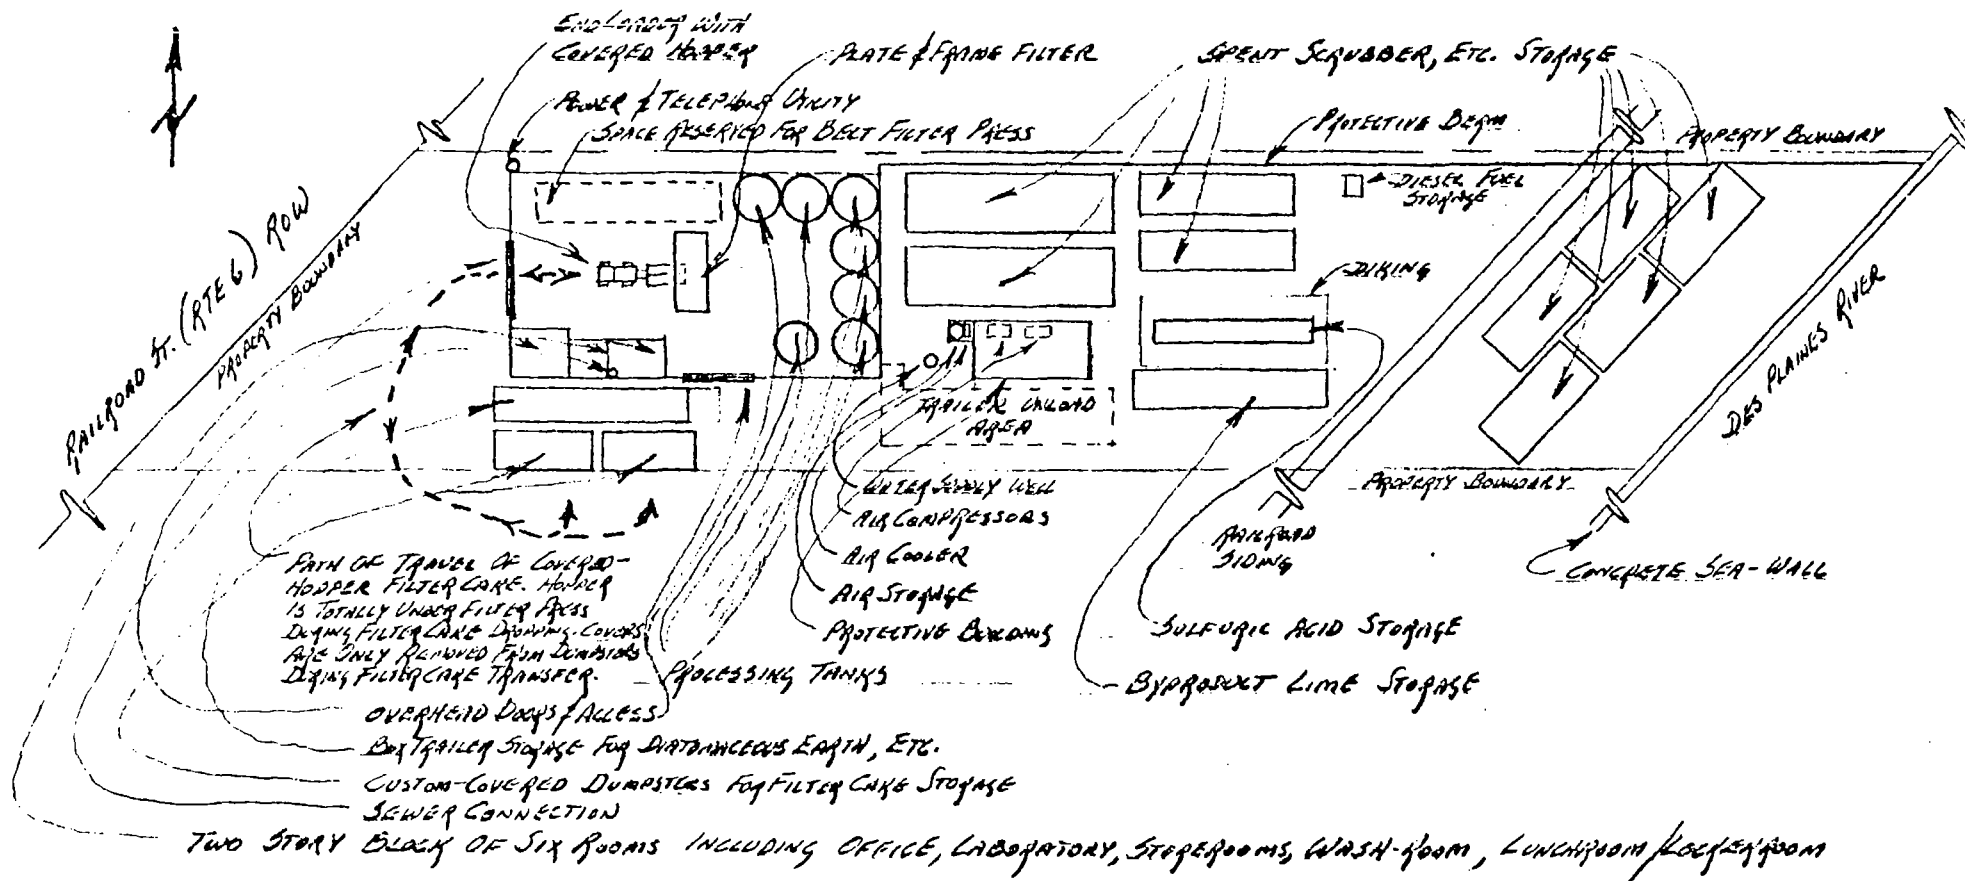 END LOADER WITH
COVERED HOPPER
PLATE & FRAME FILTER
SPENT SCRUBBER, ETC. STORAGE
POWER & TELEPHONE UTILITY
SPACE RESERVED FOR BELT FILTER PRESS
PROTECTIVE BERM
PROPERTY BOUNDARY
DIESEL FUEL
STORAGE
RAILROAD ST. (RTE 6) ROW
PROPERTY BOUNDARY
DIKING
DES PLAINES RIVER
TRAILER UNLOAD
AREA
WATER SUPPLY WELL
AIR COMPRESSORS
AIR COOLER
AIR STORAGE
PROTECTIVE BUILDING
PROPERTY BOUNDARY
RAILROAD
SIDING
CONCRETE SEA-WALL
PATH OF TRAVEL OF COVERED-
HOPPER FILTER CAKE. HOPPER
IS TOTALLY UNDER FILTER PRESS
DURING FILTER CAKE DROPPING. COVERS
ARE ONLY REMOVED FROM DUMPSTERS
DURING FILTER CAKE TRANSFER.
PROCESSING TANKS
SULFURIC ACID STORAGE
BYPRODUCT LIME STORAGE
OVERHEAD DOORS & ACCESS
BOX TRAILER STORAGE FOR DIATOMACEOUS EARTH, ETC.
CUSTOM-COVERED DUMPSTERS FOR FILTER CAKE STORAGE
SEWER CONNECTION
TWO STORY BLOCK OF SIX ROOMS INCLUDING OFFICE, LABORATORY, STOREROOMS, WASH-ROOM, LUNCHROOM/LOCKERROOM